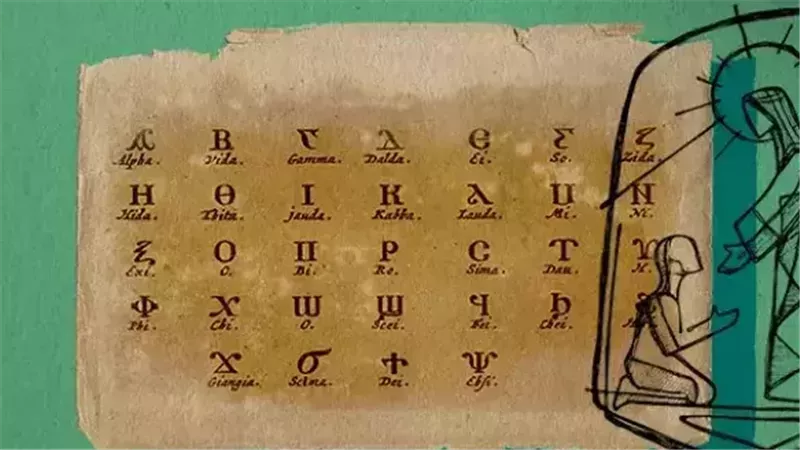 Ⲁ Ⲃ Ⲅ Ⲇ Ⲉ Ⲋ Ⲍ
Alpha. Vida. Gamma. Dalda. Ei. So. Zida.
Ⲏ Ⲑ Ⲓ Ⲕ Ⲗ Ⲙ Ⲛ
Hida. Thita. jauda. Kabba. Lauda. Mi. Ni.
Ⲝ Ⲟ Ⲡ Ⲣ Ⲥ Ⲧ Ⲩ
Exi. O. Bi. Ro. Sima. Dau. H.
Ⲫ Ⲭ Ⲱ Ϣ Ϥ Ϧ
Phi. Chi. O. Scei. Fei. Chei.
Ϫ Ϭ Ϯ Ⲯ
Giangia. Scima. Dei. Ebsi.